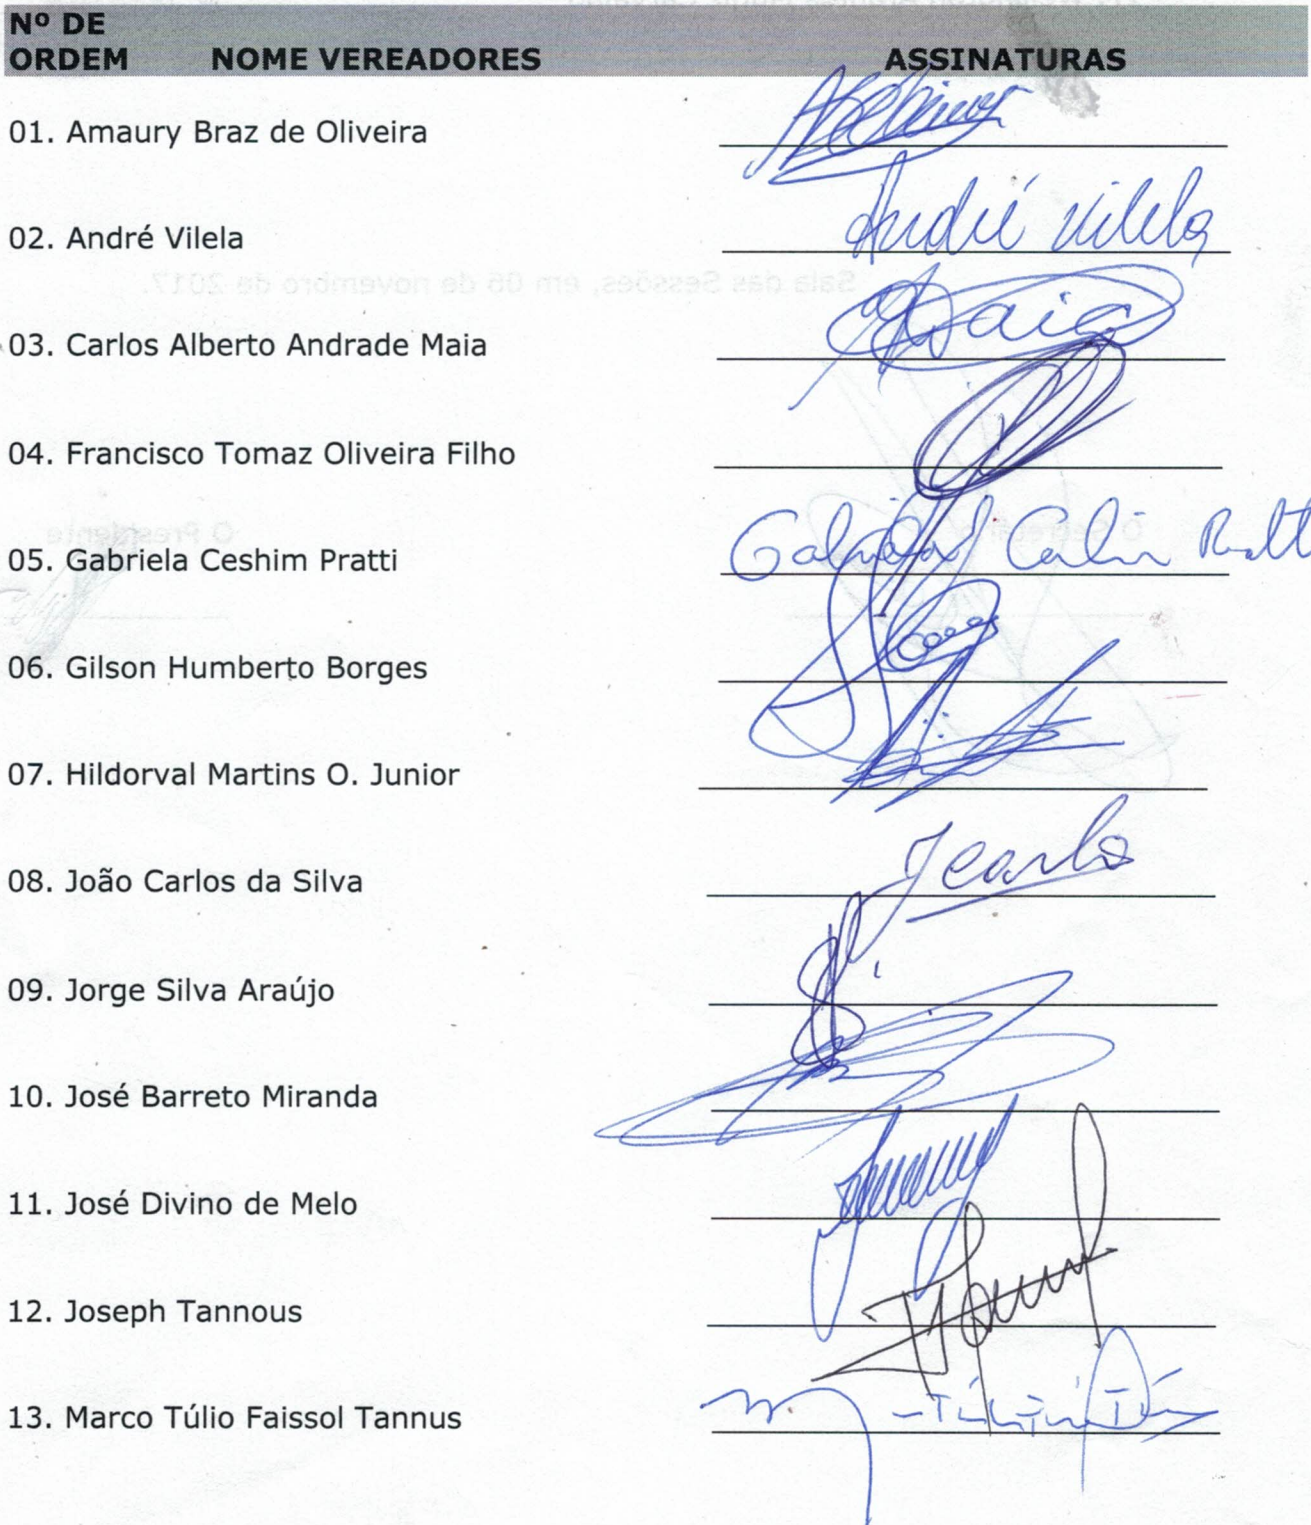 Nº DE
ORDEM NOME VEREADORES ASSINATURAS
01. Amaury Braz de Oliveira
02. André Vilela André Vilela
Sala das Sessões, em 06 de novembro de 2017.
03. Carlos Alberto Andrade Maia Maia
04. Francisco Tomaz Oliveira Filho
O Presidente O Secretário
05. Gabriela Ceshim Pratti Gabriela
06. Gilson Humberto Borges
07. Hildorval Martins O. Junior
08. João Carlos da Silva JCarlos
09. Jorge Silva Araújo
10. José Barreto Miranda
11. José Divino de Melo
12. Joseph Tannous
13. Marco Túlio Faissol Tannus